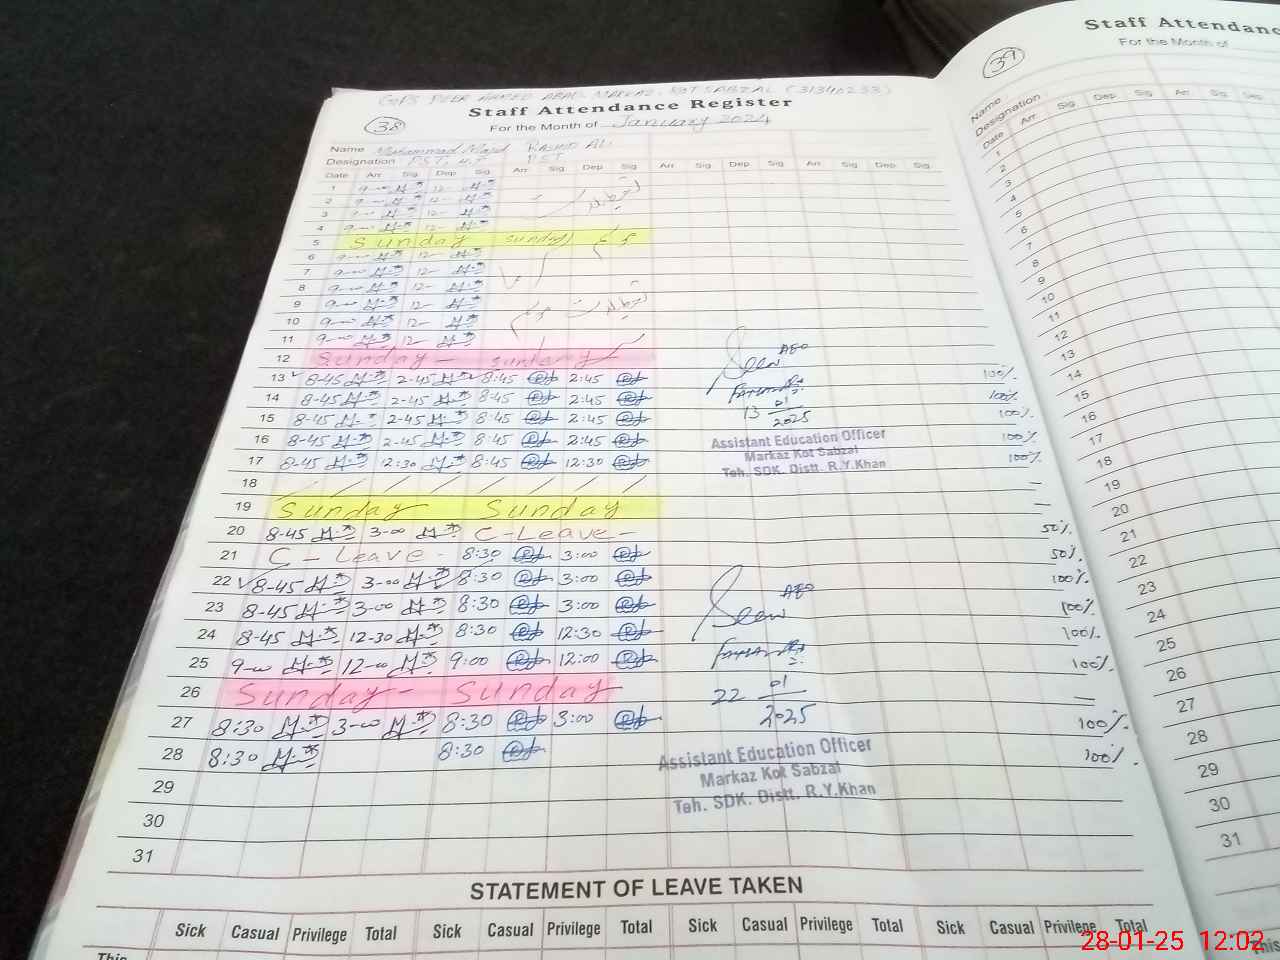 GPS PEER AHMED ABAD MARKAZ KOT SABZAL (31340233)
Staff Attendance Register
38
For the Month of January 2024
Name Muhammad Majid Rashid Ali
Designation PST, H.T PST
Date Arr Sig Dep Sig Arr Sig Dep Sig Arr Sig Dep Sig Arr Sig Dep Sig
1 9-00 12-
2 9-00 12- تعطیلات
3 9-00 12-
4 9-00 12-
5 Sunday Sunday
6 9-00 12-
7 9-00 12-
8 9-00 12-
9 9-00 12- تعطیلات
10 9-00 12-
11 9-00 12-
12 Sunday - Sunday
13 8-45 2-45 8:45 2:45 AEO 100%
14 8-45 2-45 8:45 2:45 100%
15 8-45 2-45 8:45 2:45 13 01 2025 100%
16 8-45 2-45 8:45 2:45 100%
17 8-45 12:30 8:45 12:30 100%
Assistant Education Officer
Markaz Kot Sabzal
Teh. SDK. Distt. R.Y.Khan
18 —
19 Sunday Sunday —
20 8-45 3-00 C-Leave- 50%
21 C-Leave- 8:30 3:00 50%
22 8-45 3-00 8:30 3:00 AEO 100%
23 8-45 3-00 8:30 3:00 100%
24 8-45 12-30 8:30 12:30 100%
25 9-00 12-00 9:00 12:00 100%
26 Sunday- Sunday 22 01 2025 —
27 8:30 3-00 8:30 3:00 100%
28 8:30 8:30 100%
Assistant Education Officer
Markaz Kot Sabzal
Teh. SDK. Distt. R.Y.Khan
29
30
31
STATEMENT OF LEAVE TAKEN
Sick Casual Privilege Total Sick Casual Privilege Total Sick Casual Privilege Total Sick Casual Privilege Total
This
39
Staff Attendanc
For the Month of
Name
Designation
Date Arr Sig Dep Sig Arr Sig Dep
1
2
3
4
5
6
7
8
9
10
11
12
13
14
15
16
17
18
19
20
21
22
23
24
25
26
27
28
29
30
31
This
28-01-25 12:02